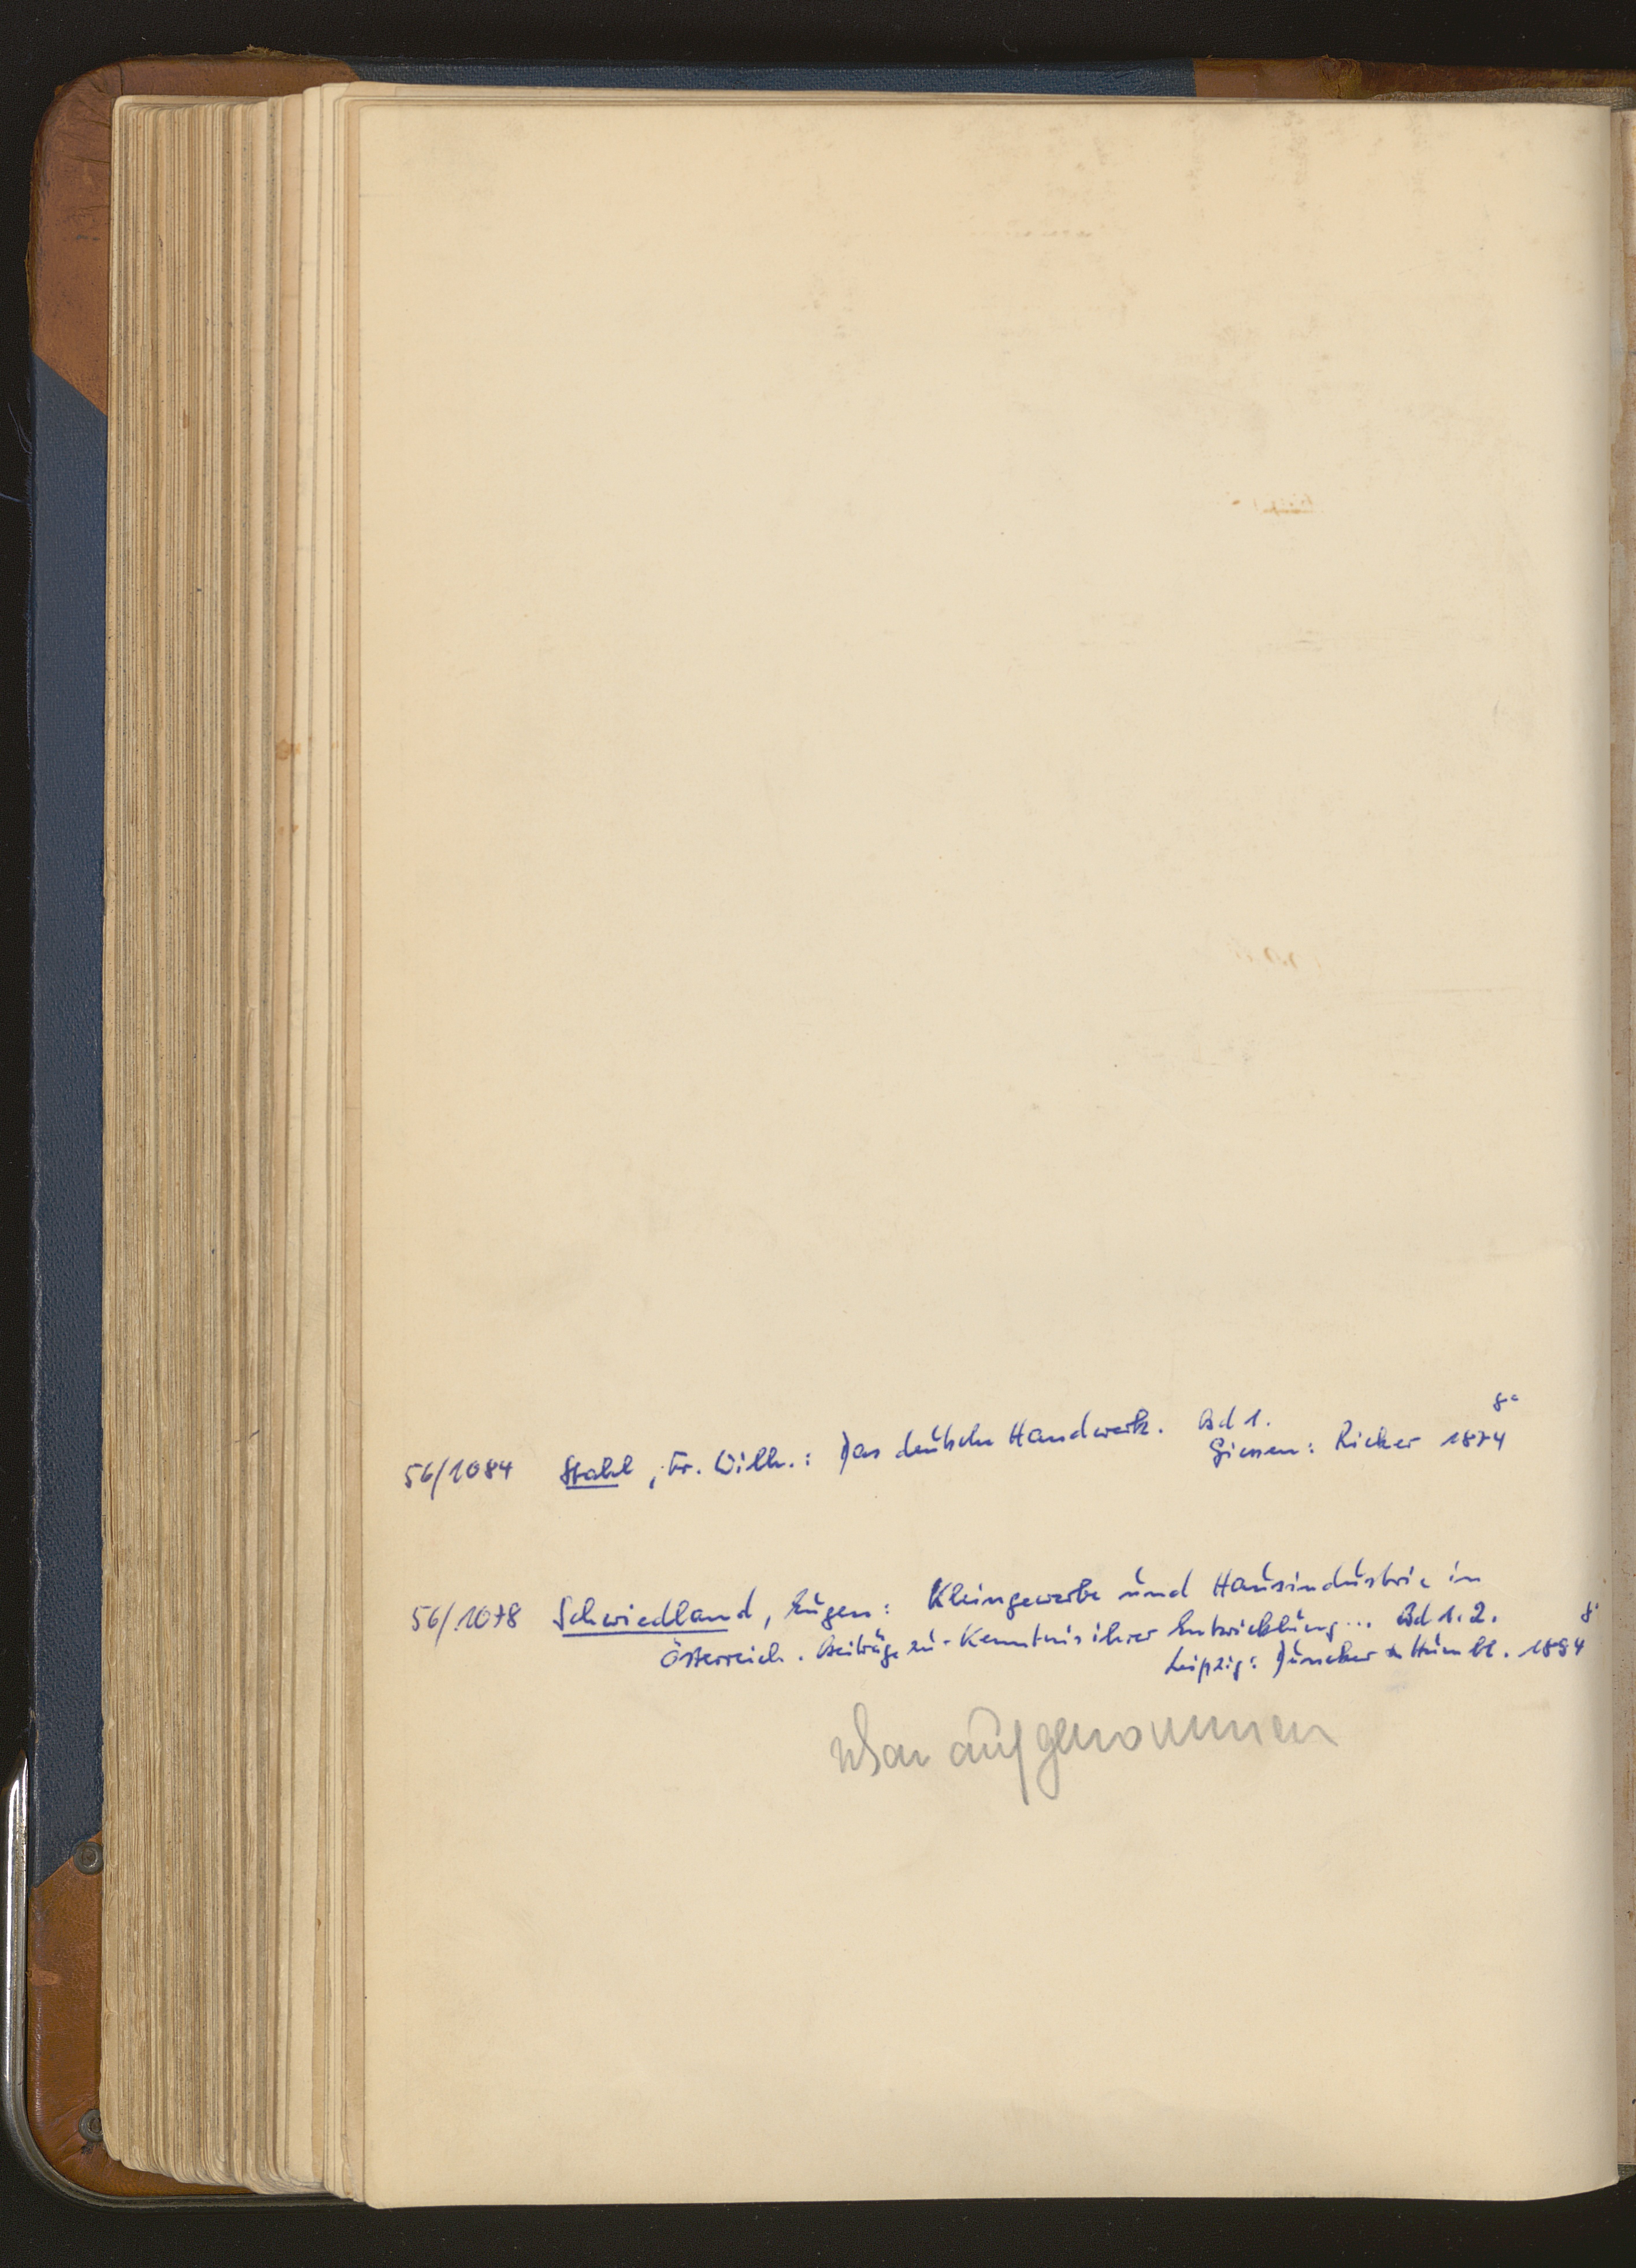 8°
56/1084 Stahl, Fr. Wilh.: Das deutsche Handwerk. Bd 1.
Giessen: Ricker 1874
56/1078 Schwiedland, Eugen: Kleingewerbe und Hausindustrie in
Österreich. Beiträge zur Kenntnis ihrer Entwicklung... Bd 1.2. 8°
Leipzig: Duncker & Humbl. 1894
schon aufgenommen